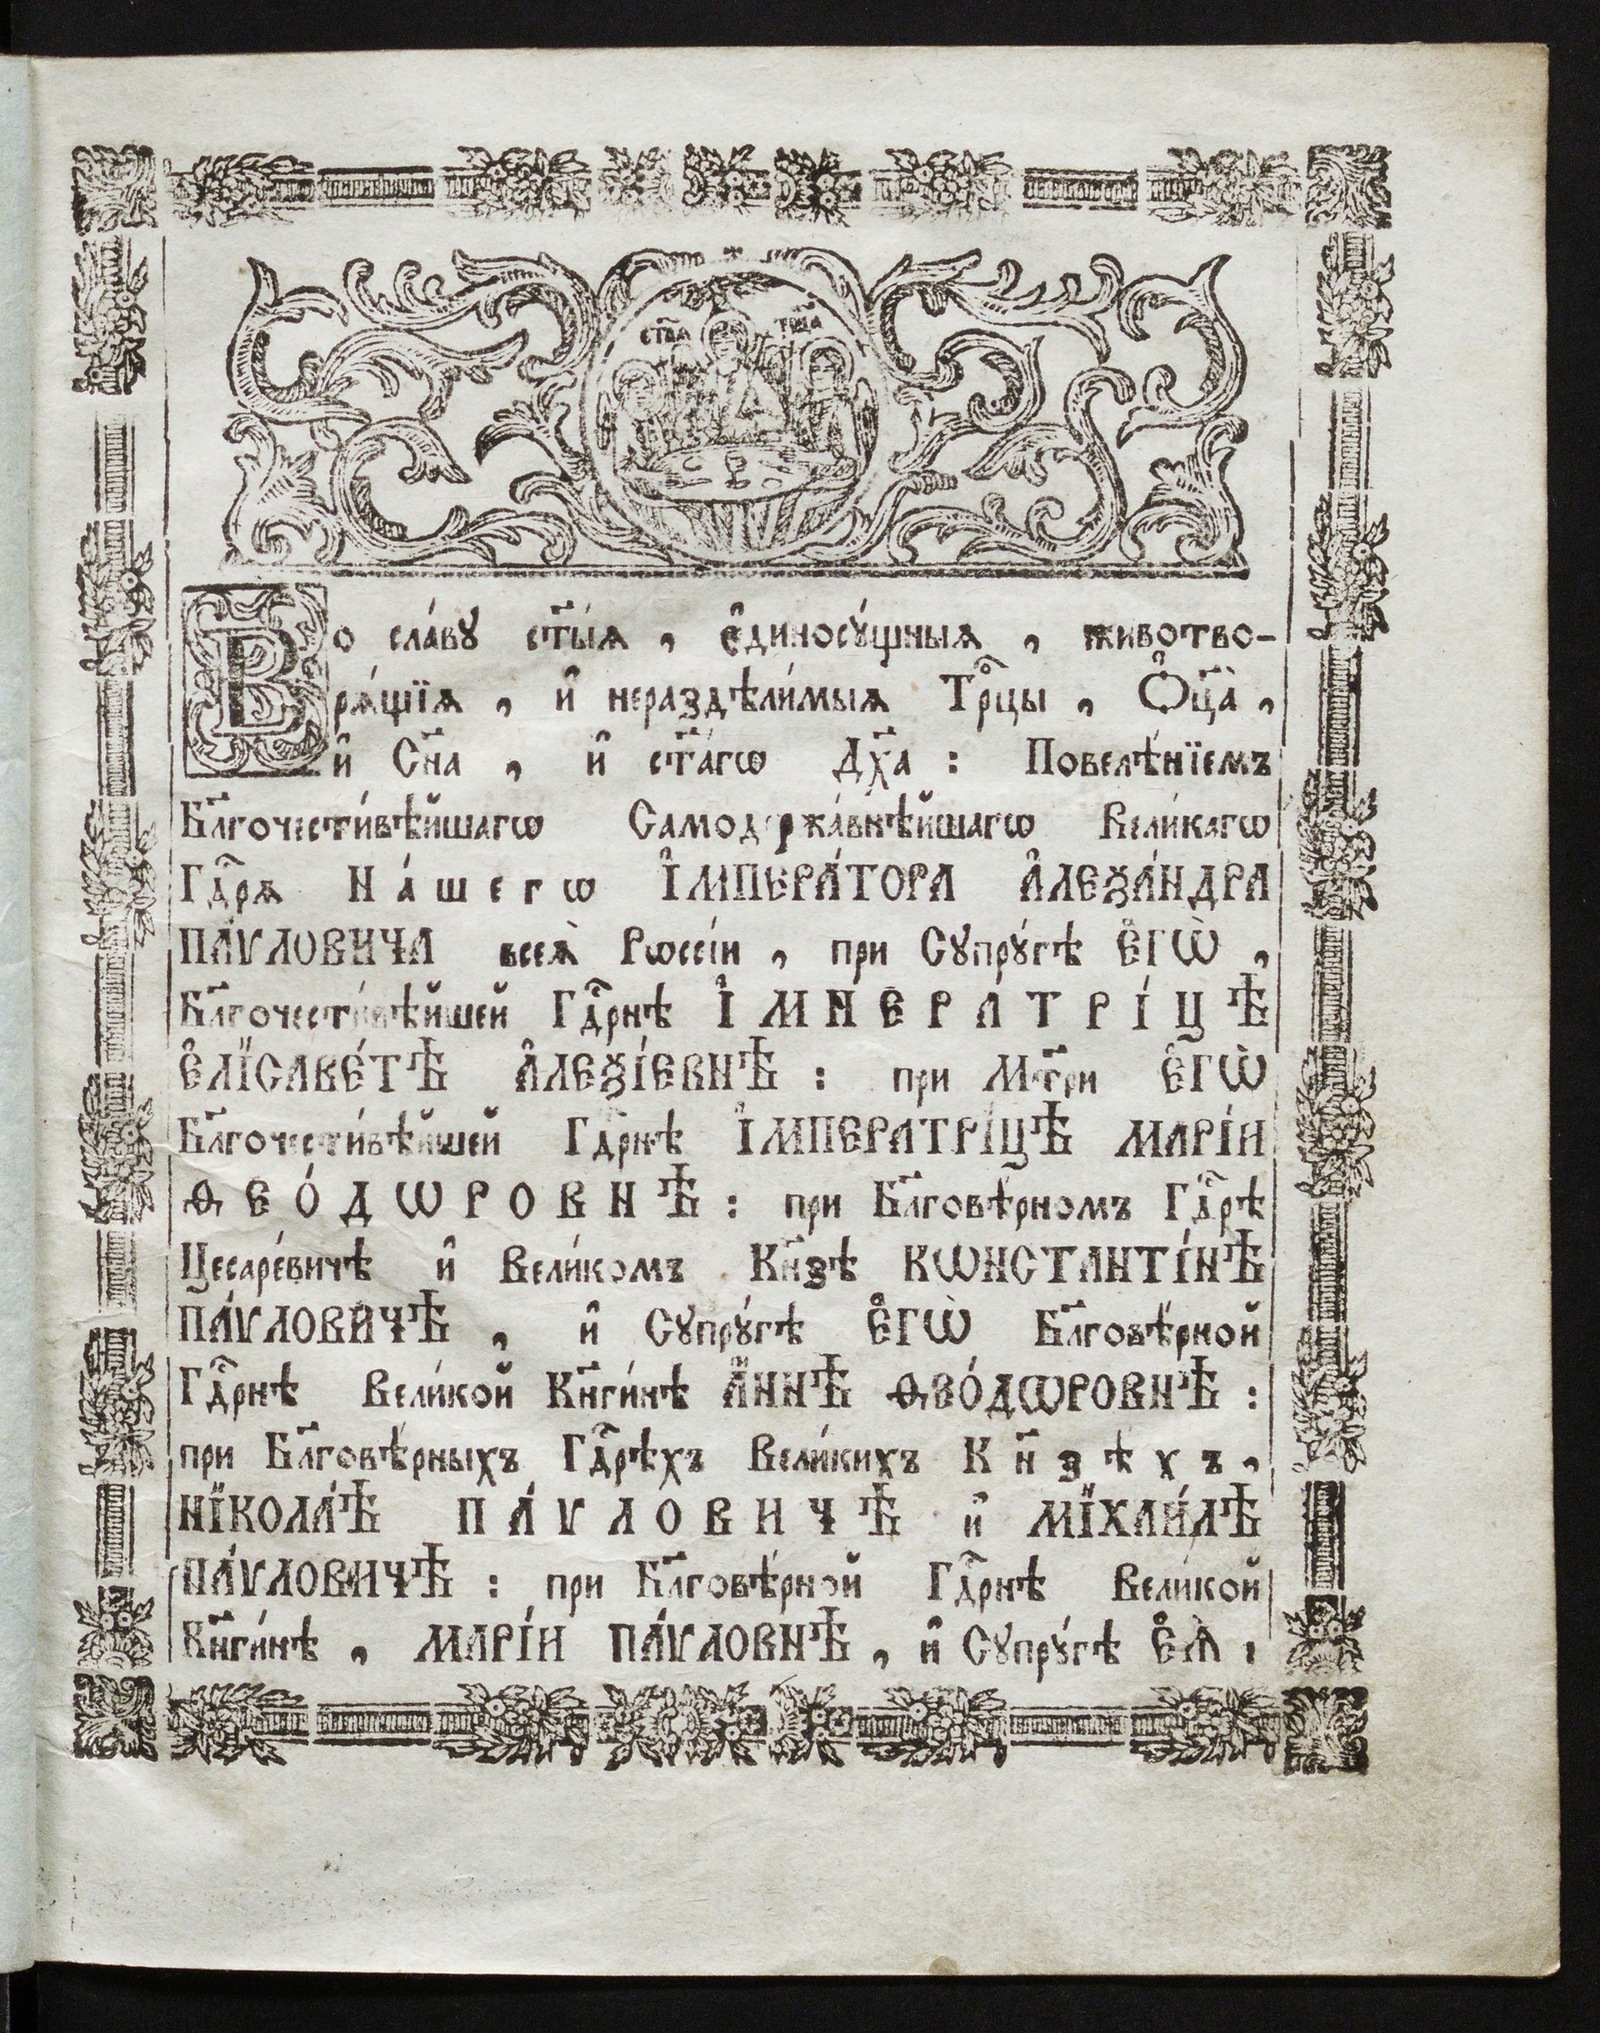 ст҃аѧ трⷪ҇ца
Во сла́ву ст҃ы́ѧ , є҆диносу́щныѧ , животво-
рѧ́щїѧ , и҆ нераздѣли́мыѧ Трⷪ҇цы , Ѻ҆ц҃а̀ ,
и҆ Сн҃а , и҆ ст҃а́гѡ Дх҃а : Повелѣ́нїемъ
Бл҃гочести́вѣйшагѡ Самодержа́внѣйшагѡ Вели́кагѡ
Гдⷭ҇рѧ На́шегѡ І҆МПЕРА́ТОРА А҆ЛЕѮА́НДРА
ПА́ѴЛОВИЧА всеѧ̀ Рѡссі́и , при Супру́гѣ Є҆ГѠ̀ ,
Бл҃гочести́вѣйшей Гдⷭ҇рнѣ І҆МПЕРА́ТРІ́ЦѢ
Є҆ЛІСАВЕ́ТѢ А҆ЛЕѮІ́ЕВНѢ : при Мт҃ри Є҆ГѠ̀
Бл҃гочести́вѣйшей Гдⷭ҇рнѣ І҆МПЕРАТРІ́ЦѢ МАРІ́И
ѲЕО́ДѠРОВНѢ : при Бл҃говѣ́рномъ Гдⷭ҇рѣ
Цесаре́вичѣ и҆ Вели́комъ Кн҃зѣ КѠНСТАНТІ́НѢ
ПА́ѴЛОВИЧѢ , и҆ Супру́гѣ Є҆ГѠ̀ Бл҃говѣ́рной
Гдⷭ҇рнѣ Вели́кой Кн҃ги́нѣ А҆́ННѢ ѲЕО́ДѠРОВНѢ :
при Бл҃говѣ́рныхъ Гдⷭ҇рѣхъ Вели́кихъ Кн҃зѣхъ ,
НІКОЛА́Ѣ ПА́ѴЛОВИЧѢ и҆ МІХАИ́ЛѢ
ПА́ѴЛОВИЧѢ : при Бл҃говѣ́рной Гдⷭ҇рнѣ Вели́кой
Кн҃ги́нѣ , МАРІ́И ПА́ѴЛОВНѢ , и҆ Супру́гѣ Є҆Ѧ̀ :